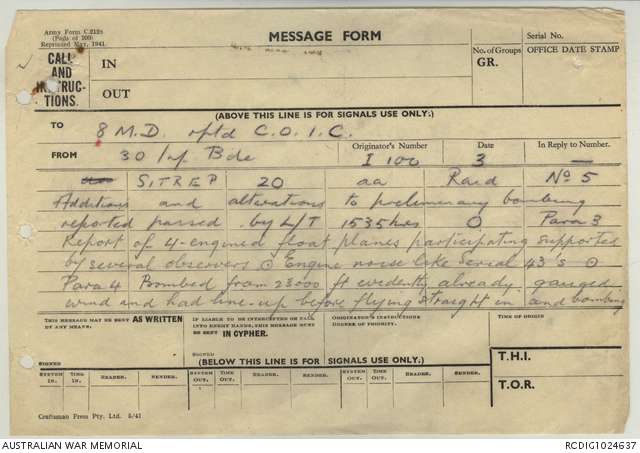 Army Form C.2128
(Pads of 100)
Reprinted May, 1941
MESSAGE FORM
Serial No.
CALL
AND
INSTRUC-
TIONS.
IN
OUT
No. of Groups
GR.
OFFICE DATE STAMP
(ABOVE THIS LINE IS FOR SIGNALS USE ONLY:)
TO
8 M.D. rptd C.O.I.C.
FROM
30 Inf Bde
Originator's Number
I 100
Date
3
In Reply to Number
—
SITREP 20 aa Raid No 5
Additions and alterations to preliminary bombing
reported passed by L/T 1535 hrs O Para 3
Report of 4-engined float planes participating supported
by several observers O Engine noise like Serial 43's O
Para 4 Bombed from 23000 ft evidently already gauged
wind and had line-up before flying straight in and bombing
THIS MESSAGE MAY BE SENT AS WRITTEN
BY ANY MEANS.
IF LIABLE TO BE INTERCEPTED OR FALL
INTO ENEMY HANDS, THIS MESSAGE MUST
BE SENT IN CYPHER.
ORIGINATOR'S INSTRUCTIONS
DEGREE OF PRIORITY.
TIME OF ORIGIN
SIGNED
SIGNED
(BELOW THIS LINE IS FOR SIGNALS USE ONLY.)
T.H.I.
T.O.R.
SYSTEM IN. TIME IN. READER. SENDER. SYSTEM OUT. TIME OUT. READER. SENDER. SYSTEM OUT. TIME OUT. READER. SENDER.
Craftsman Press Pty. Ltd. 5/41
AUSTRALIAN WAR MEMORIAL
RCDIG1024637